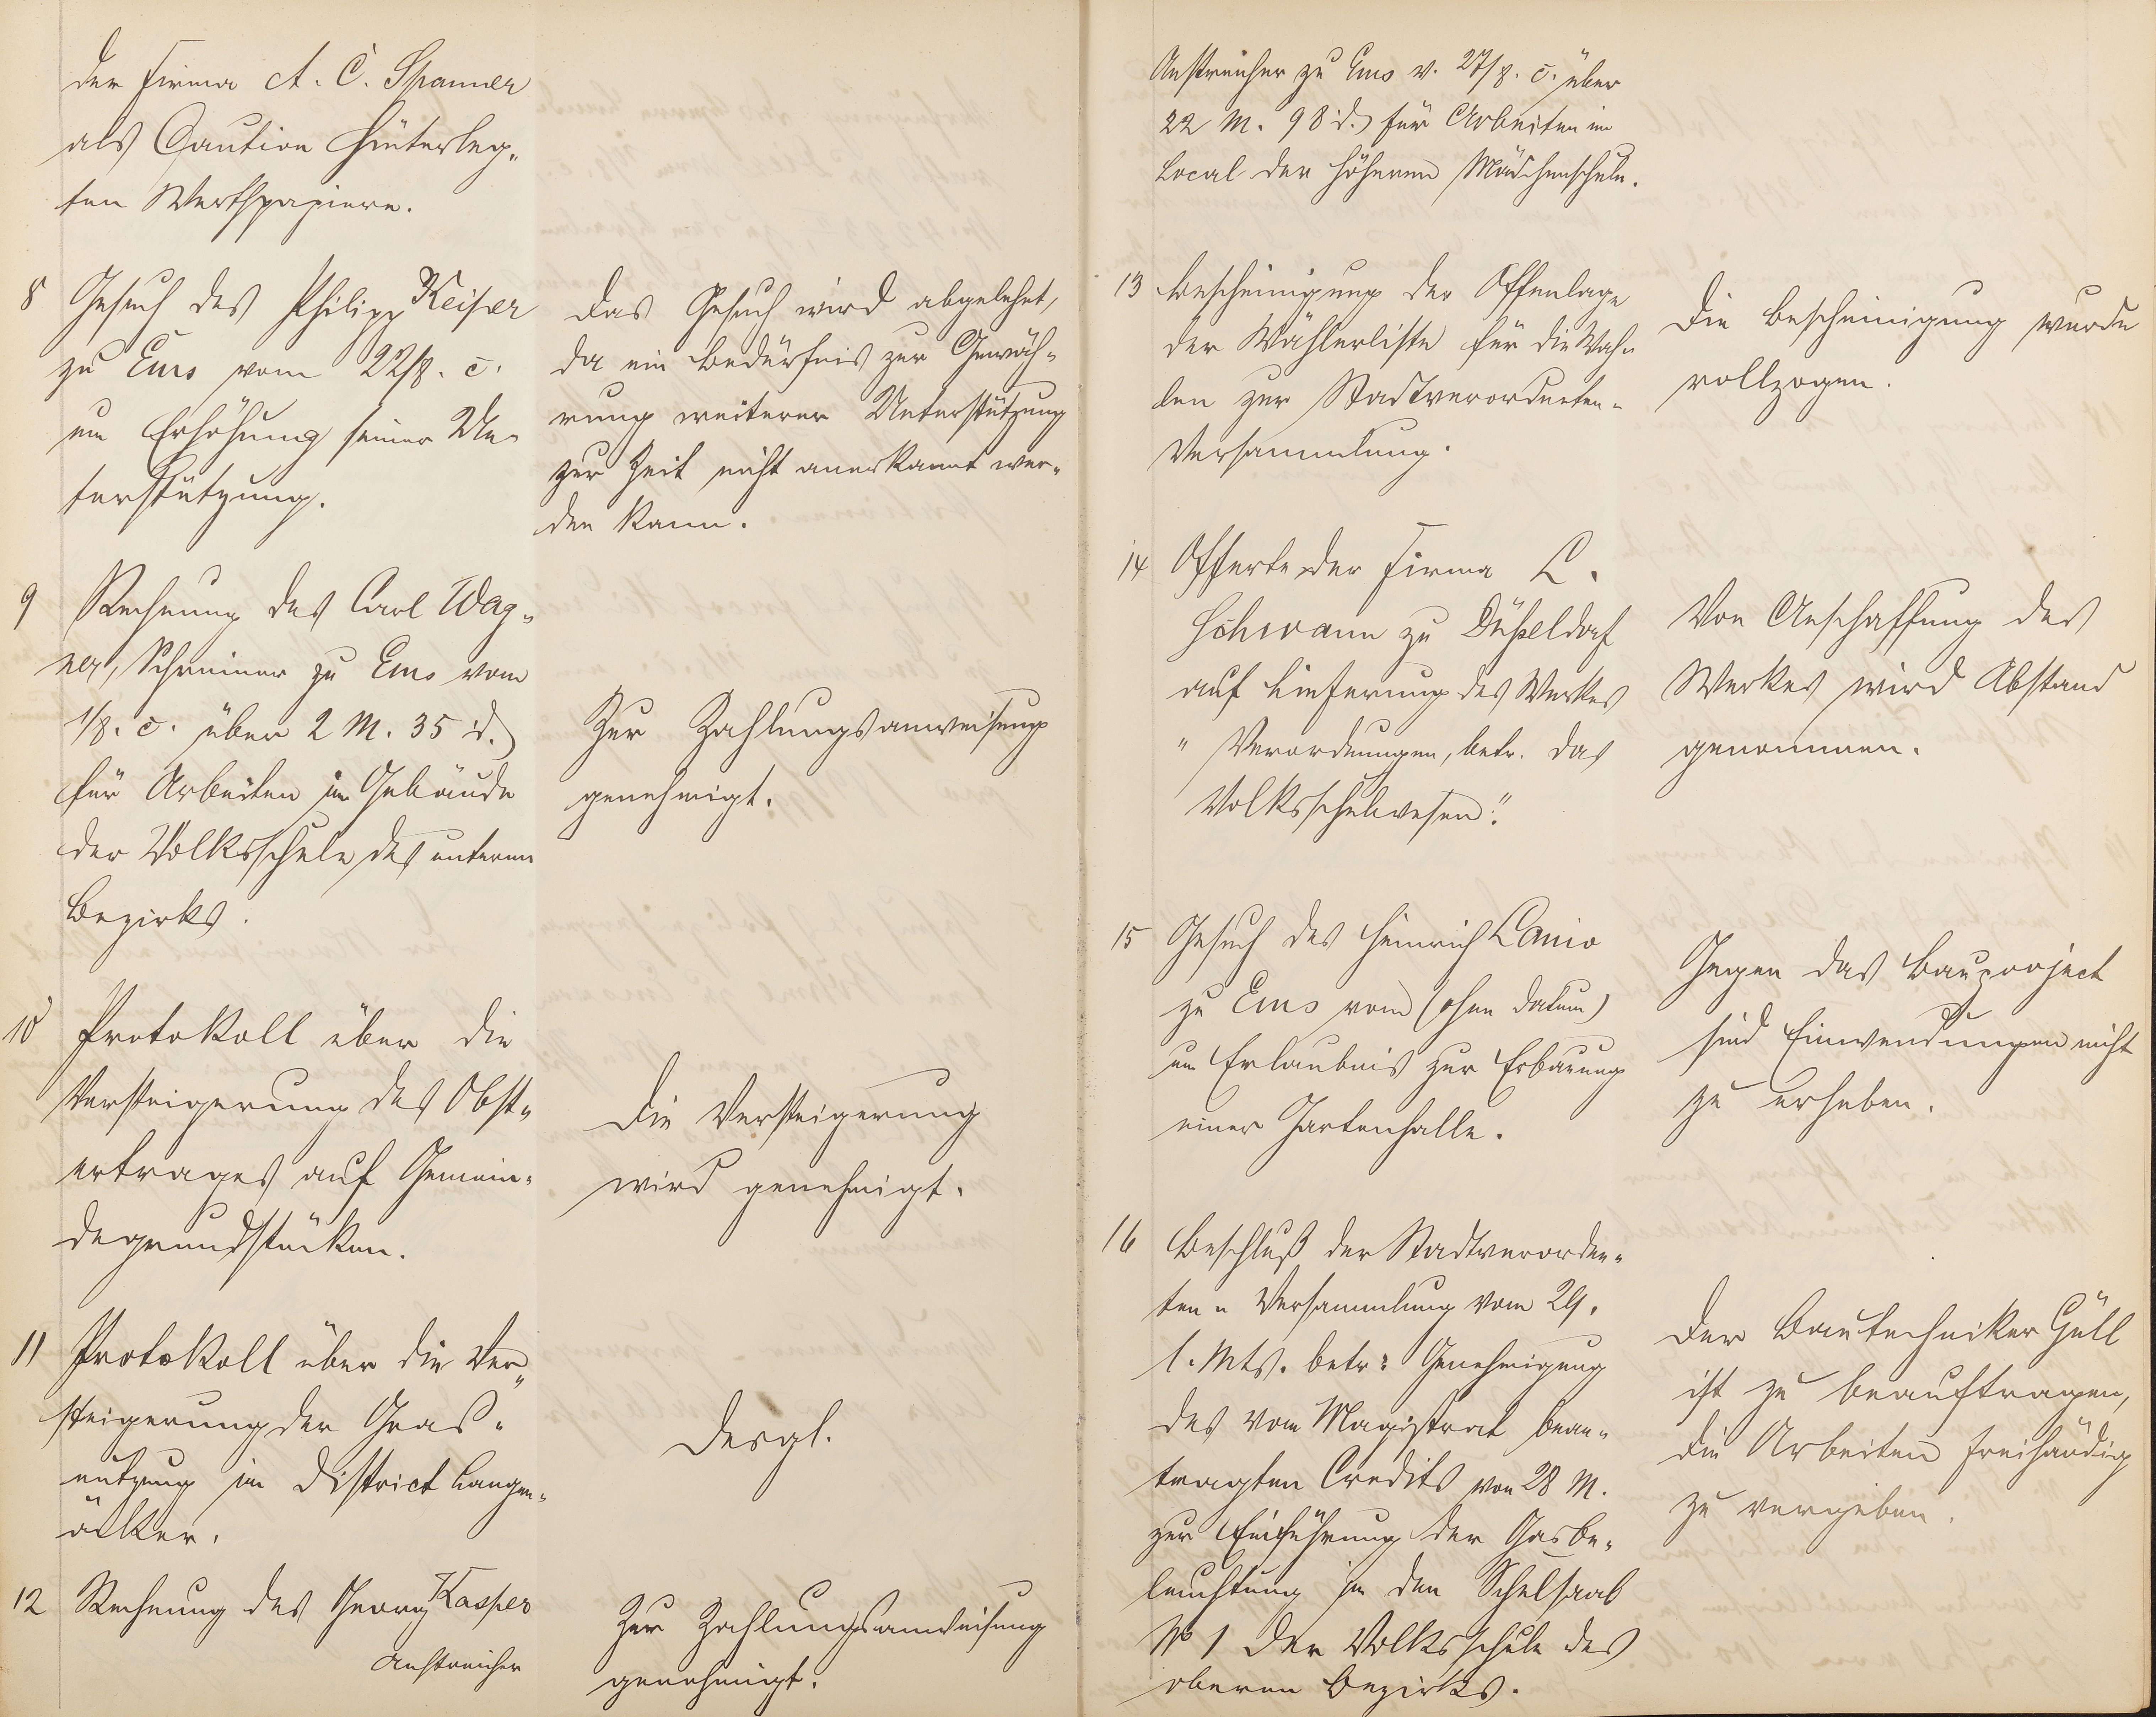 der Firma A. C. Spanner
als Caution hinterleg-
ten Werthpapiere.
8 Gesuch des Philipp Keiper
zu Ems vom 22/8. c.
um Erhöhung seiner Un-
terstützung.
Das Gesuch wird abgelehnt,
da ein Bedürfnis zur Gewäh-
rung weiterer Unterstützung
zur Zeit nicht anerkannt wer-
den kann.
9 Rechnung des Carl Wag-
ner, Schreiner zu Ems vom
1/8. c. über 2 M. 35 d.
für Arbeiten im Gebäude
der Volksschule des unteren
Bezirks.
Zur Zahlungsanweisung
genehmigt.
10 Protokoll über die
Versteigerung des Obst-
ertrages auf Gemein-
degrundstücken.
Die Versteigerung
wird genehmigt.
11 Protokoll über die Ver-
steigerung der Gras-
nutzung im District Langen-
äcker.
Desgl.
12 Rechnung des Georg Kasper
Anstreicher
Zur Zahlungsanweisung
genehmigt.
Anstreicher zu Ems v. 27/8. c. über
22 M. 98 d. für Arbeiten im
Local der höheren Mädchenschule.
13 Bescheinigung der Offenlage
der Wählerliste für die Wah-
len zur Stadtverordneten-
Versammlung.
Die Bescheinigung wurde
vollzogen.
14 Offerte der Firma L.
Schwann zu Düsseldorf
auf Lieferung des Werkes
"Verordnungen, betr. das
Volksschulwesen".
Von Anschaffung des
Werkes wird Abstand
genommen.
15 Gesuch des Heinrich Lanio
zu Ems vom (ohne Datum)
um Erlaubnis zur Erbauung
einer Gartenhalle.
Gegen das Bauproject
sind Einwendungen nicht
zu erheben.
16 Beschluß der Stadtverordne-
ten-Versammlung vom 29.
l. Mts. betr: Genehmigung
des vom Magistrat bean-
tragten Credits von 28 M.
zur Einführung der Gasbe-
leuchtung in den Schulsaal
No 1 der Volksschule des
oberen Bezirks.
Der Bautechniker Güll
ist zu beauftragen,
die Arbeiten freihändig
zu vergeben.